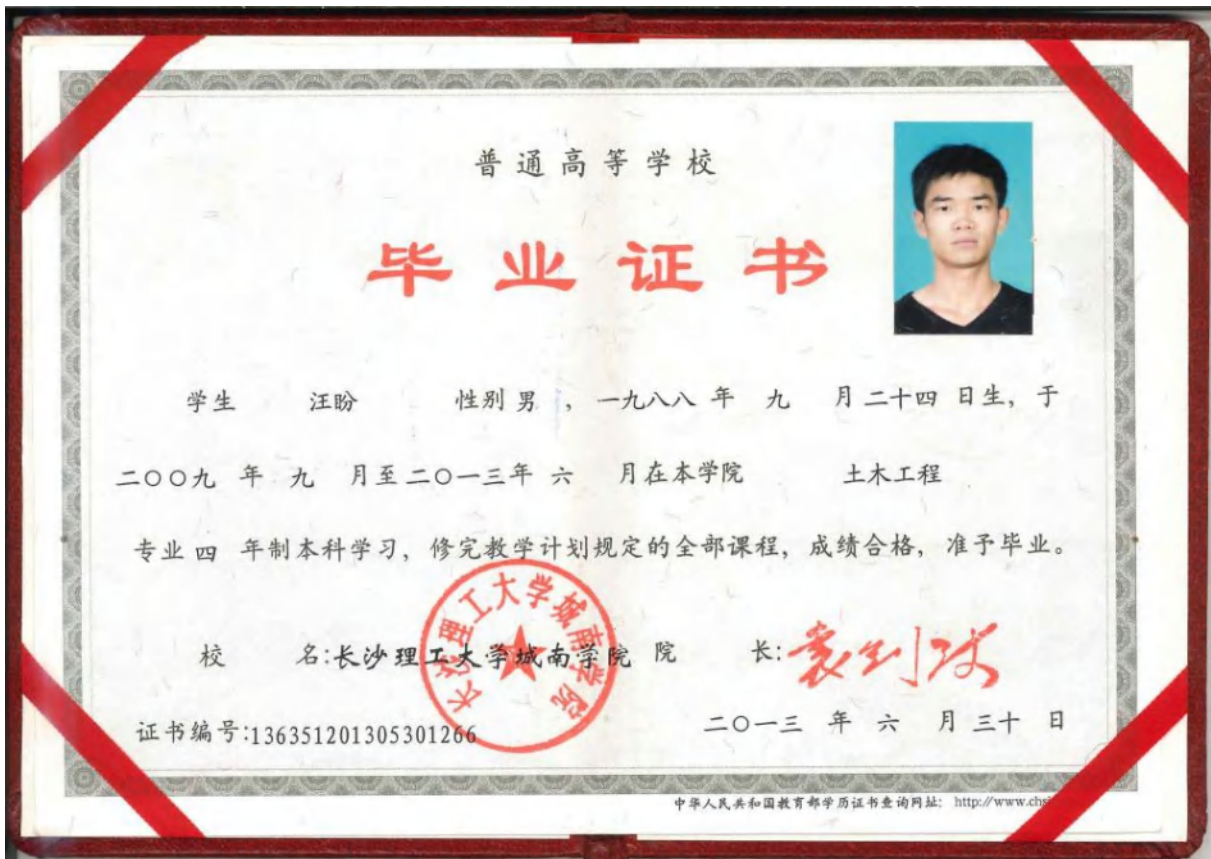 普通高等学校
毕业证书
学生 汪盼 性别 男 ，一九八八 年 九 月 二十四 日生，于
二〇〇九 年 九 月至 二〇一三年 六 月在本学院 土木工程
专业 四 年制本科学习，修完教学计划规定的全部课程，成绩合格，准予毕业。
长沙理工大学城南学院
校 名:长沙理工大学城南学院 院 长:
证书编号:136351201305301266
二〇一三 年 六 月 三十 日
中华人民共和国教育部学历证书查询网址: http://www.chsi